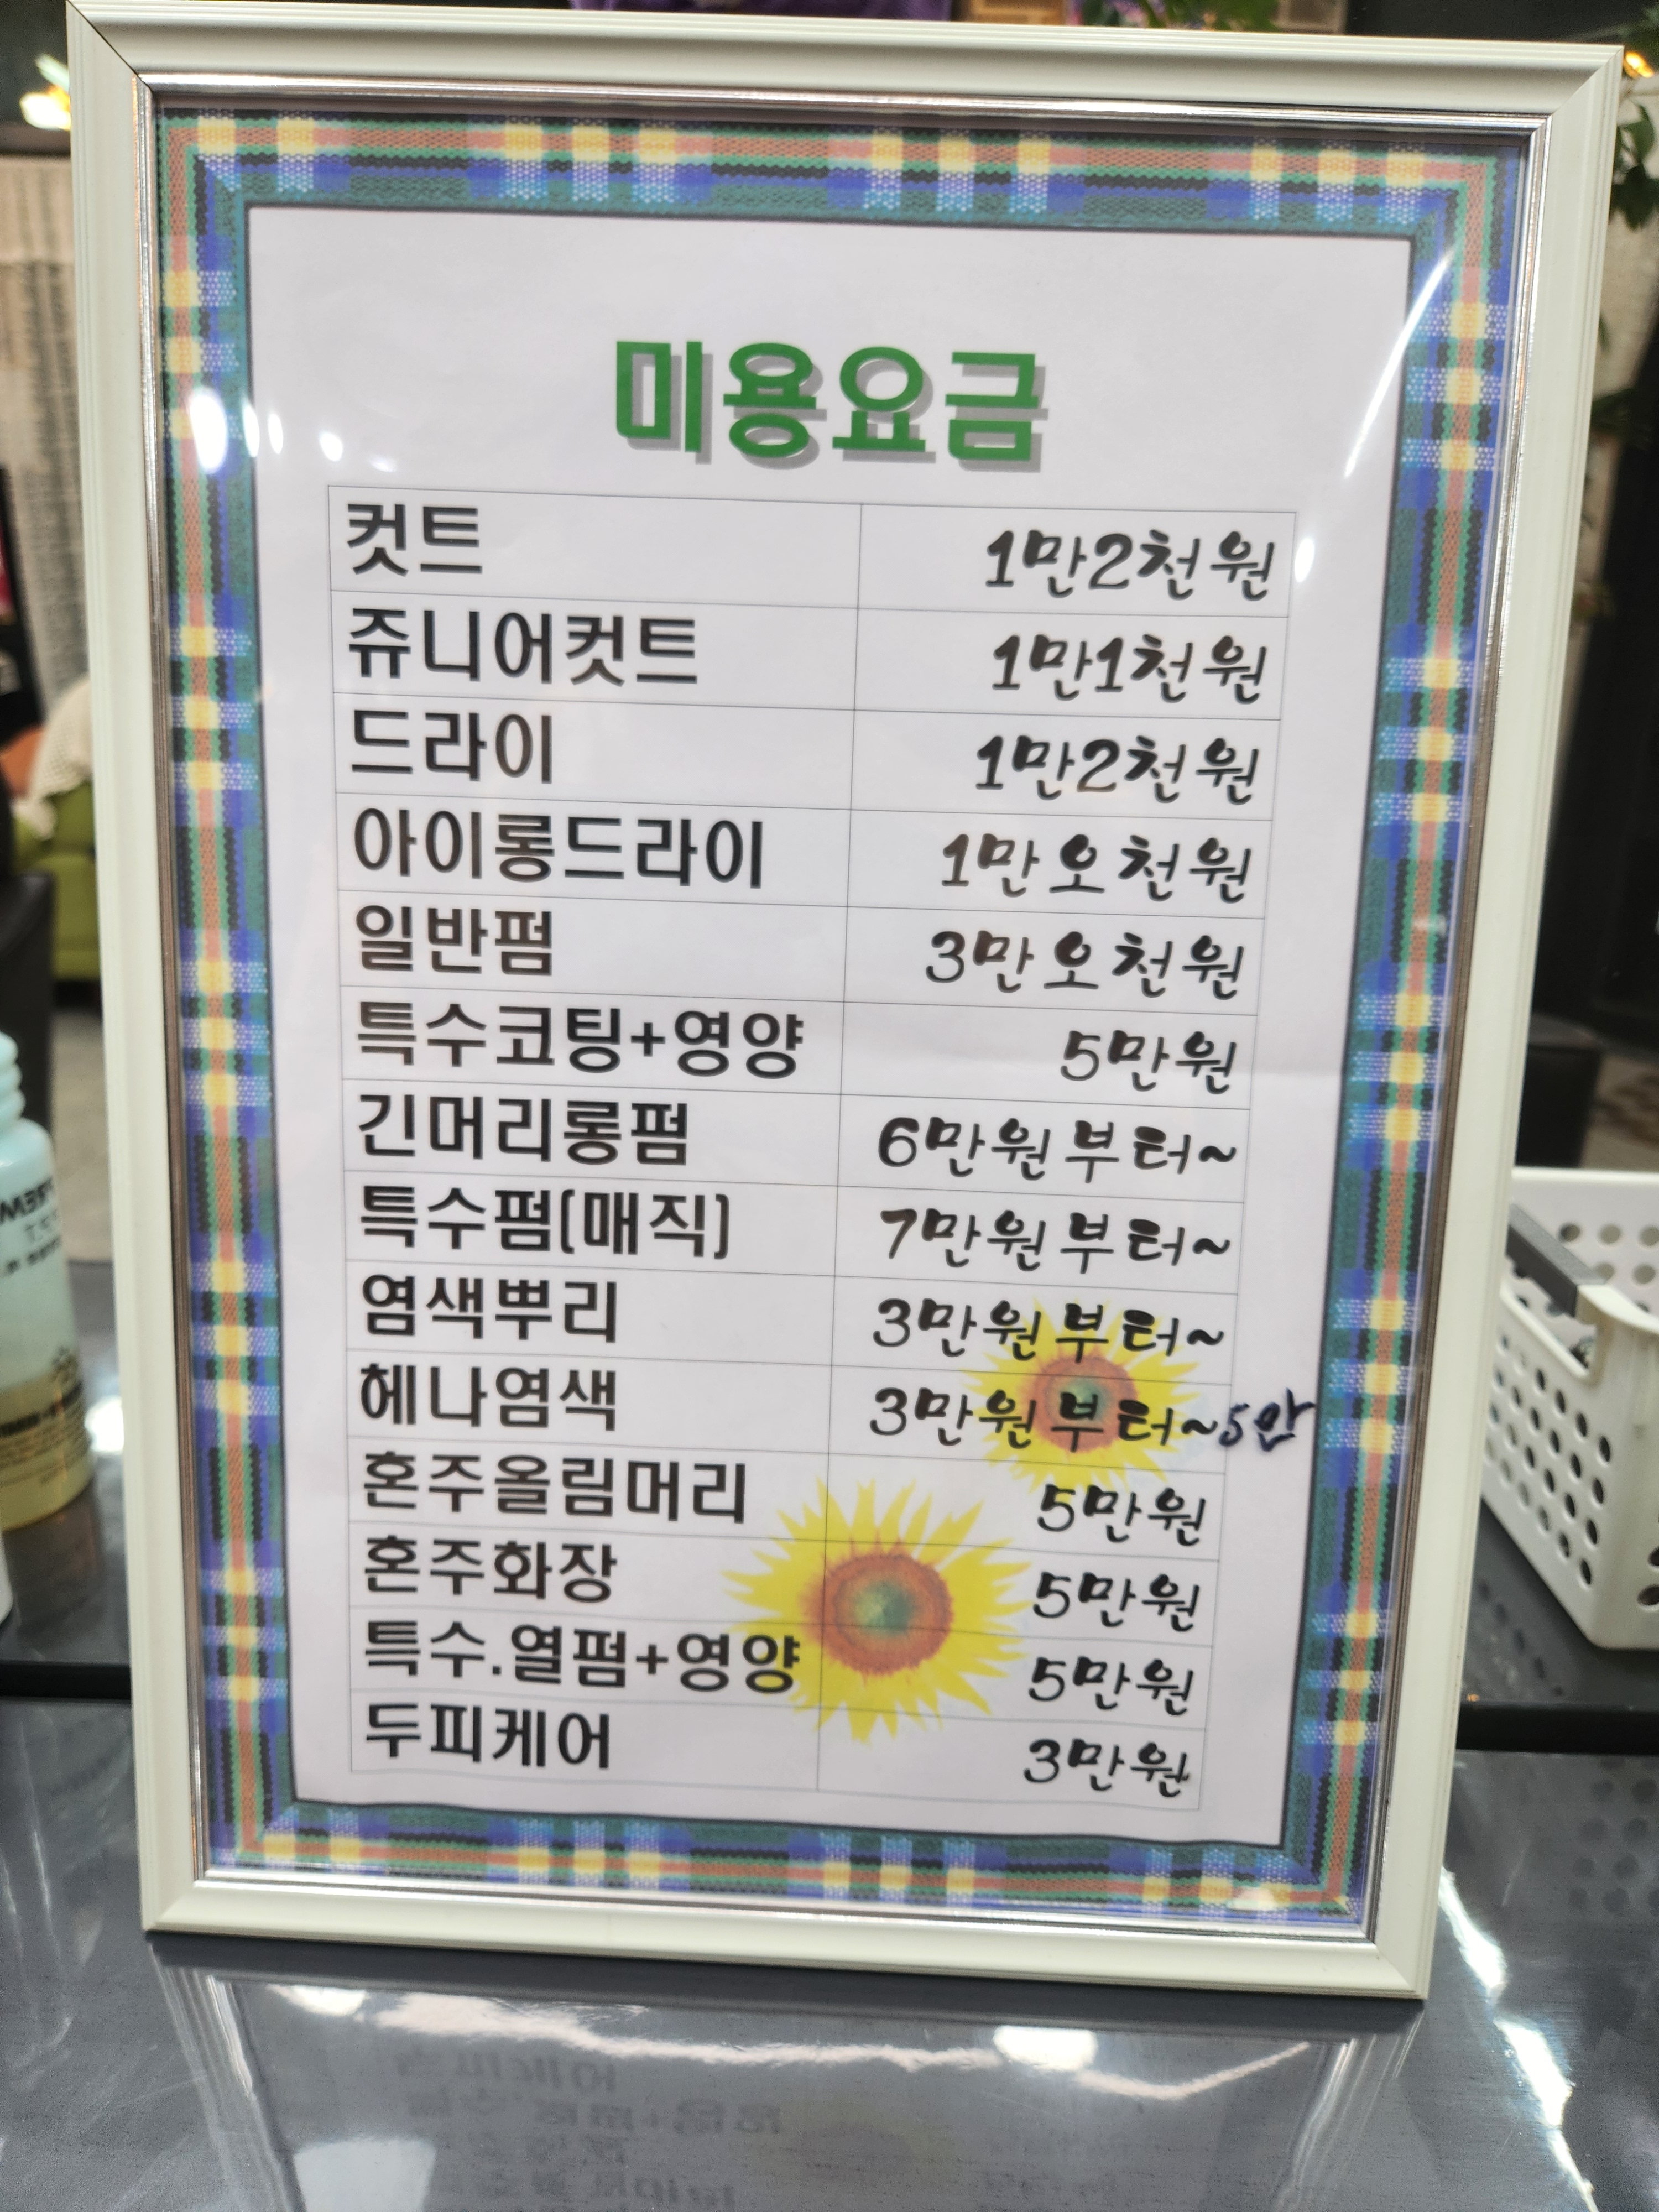 미용요금
컷트 1만2천원
쥬니어컷트 1만1천원
드라이 1만2천원
아이롱드라이 1만오천원
일반펌 3만오천원
특수코팅+영양 5만원
긴머리롱펌 6만원부터~
특수펌(매직) 7만원부터~
염색뿌리 3만원부터~
헤나염색 3만원부터~5만
혼주올림머리 5만원
혼주화장 5만원
특수.열펌+영양 5만원
두피케어 3만원